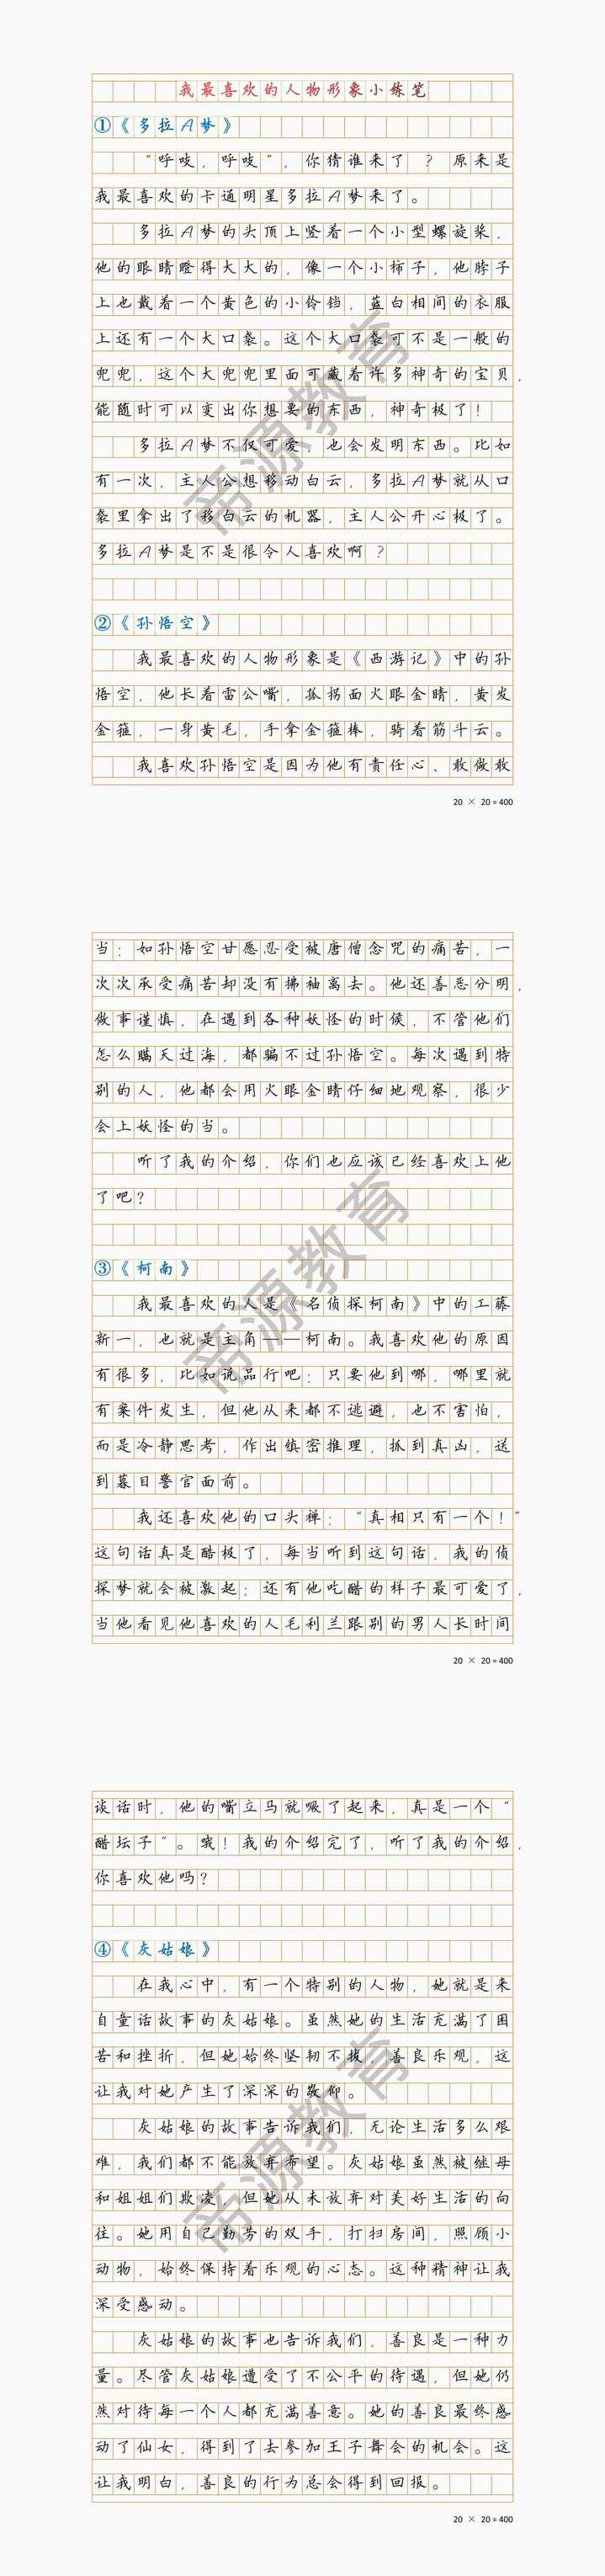 我最喜欢的人物形象小练笔
①《多拉A梦》
“呼吱，呼吱”，你猜谁来了？原来是
我最喜欢的卡通明星多拉A梦来了。
多拉A梦的头顶上竖着一个小型螺旋桨，
他的眼睛瞪得大大的，像一个小柿子，他脖子
上也戴着一个黄色的小铃铛，蓝白相间的衣服
上还有一个大口袋。这个大口袋可不是一般的
兜兜，这个大兜兜里面可藏着许多神奇的宝贝，
能随时可以变出你想要的东西，神奇极了！
多拉A梦不仅可爱，也会发明东西。比如
有一次，主人公想移动白云，多拉A梦就从口
袋里拿出了移白云的机器，主人公开心极了。
多拉A梦是不是很令人喜欢啊？
②《孙悟空》
我最喜欢的人物形象是《西游记》中的孙
悟空，他长着雷公嘴，孤拐面火眼金睛，黄发
金箍，一身黄毛，手拿金箍棒，骑着筋斗云。
我喜欢孙悟空是因为他有责任心、敢做敢
20 × 20 = 400
当：如孙悟空甘愿忍受被唐僧念咒的痛苦，一
次次承受痛苦却没有拂袖离去。他还善恶分明，
做事谨慎，在遇到各种妖怪的时候，不管他们
怎么瞒天过海，都骗不过孙悟空。每次遇到特
别的人，他都会用火眼金睛仔细地观察，很少
会上妖怪的当。
听了我的介绍，你们也应该已经喜欢上他
了吧？
③《柯南》
我最喜欢的人是《名侦探柯南》中的工藤
新一，也就是主角——柯南。我喜欢他的原因
有很多，比如说品行吧：只要他到哪，哪里就
有案件发生，但他从来都不逃避，也不害怕，
而是冷静思考，作出缜密推理，抓到真凶，送
到暮目警官面前。
我还喜欢他的口头禅：“真相只有一个！”
这句话真是酷极了，每当听到这句话，我的侦
探梦就会被激起；还有他吃醋的样子最可爱了，
当他看见他喜欢的人毛利兰跟别的男人长时间
20 × 20 = 400
谈话时，他的嘴立马就噘了起来，真是一个“
醋坛子”。哦！我的介绍完了，听了我的介绍，
你喜欢他吗？
④《灰姑娘》
在我心中，有一个特别的人物，她就是来
自童话故事的灰姑娘。虽然她的生活充满了困
苦和挫折，但她始终坚韧不拔，善良乐观，这
让我对她产生了深深的敬仰。
灰姑娘的故事告诉我们，无论生活多么艰
难，我们都不能放弃希望。灰姑娘虽然被继母
和姐姐们欺凌，但她从未放弃对美好生活的向
往。她用自己勤劳的双手，打扫房间，照顾小
动物，始终保持着乐观的心态。这种精神让我
深受感动。
灰姑娘的故事也告诉我们，善良是一种力
量。尽管灰姑娘遭受了不公平的待遇，但她仍
然对待每一个人都充满善意。她的善良最终感
动了仙女，得到了去参加王子舞会的机会。这
让我明白，善良的行为总会得到回报。
20 × 20 = 400
帝源教育
帝源教育
帝源教育